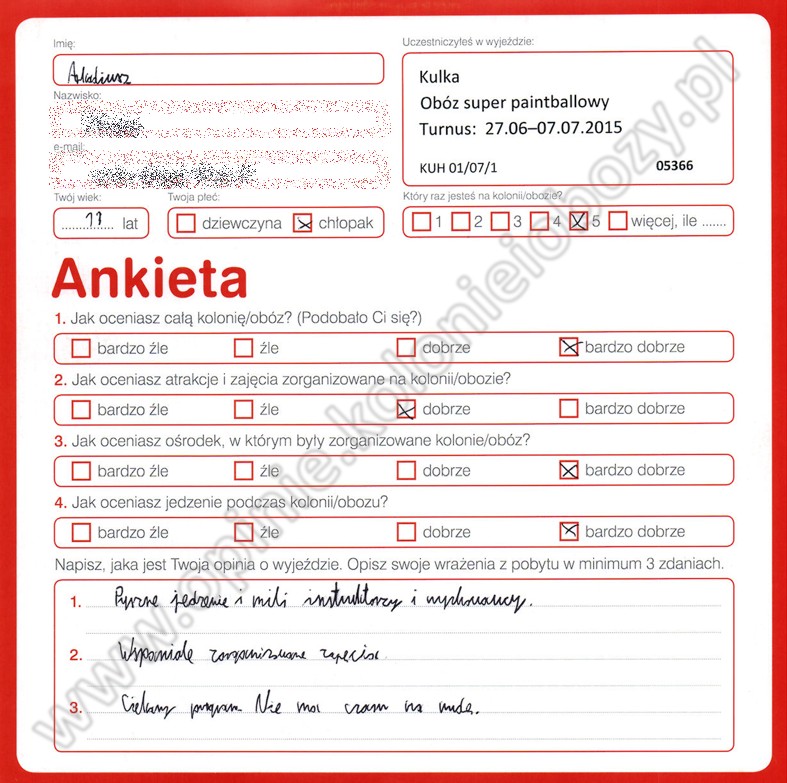 Imię:
Arkadiusz
Nazwisko:
e-mail:
Twój wiek:
11 lat
Twoja płeć:
dziewczyna chłopak
Uczestniczyłeś w wyjeździe:
Kulka
Obóz super paintballowy
Turnus: 27.06–07.07.2015
KUH 01/07/1 05366
Który raz jesteś na kolonii/obozie?
1 2 3 4 5 więcej, ile .......
Ankieta
1. Jak oceniasz całą kolonię/obóz? (Podobało Ci się?)
bardzo źle źle dobrze bardzo dobrze
2. Jak oceniasz atrakcje i zajęcia zorganizowane na kolonii/obozie?
bardzo źle źle dobrze bardzo dobrze
3. Jak oceniasz ośrodek, w którym były zorganizowane kolonie/obóz?
bardzo źle źle dobrze bardzo dobrze
4. Jak oceniasz jedzenie podczas kolonii/obozu?
bardzo źle źle dobrze bardzo dobrze
Napisz, jaka jest Twoja opinia o wyjeździe. Opisz swoje wrażenia z pobytu w minimum 3 zdaniach.
1. Pyszne jedzenie i mili instruktorzy i wychowawcy.
2. Wspaniale zorganizowane zajęcia.
3. Ciekawy program Nie ma czasu na nudę.
www.opinie.kolonieiobozy.pl